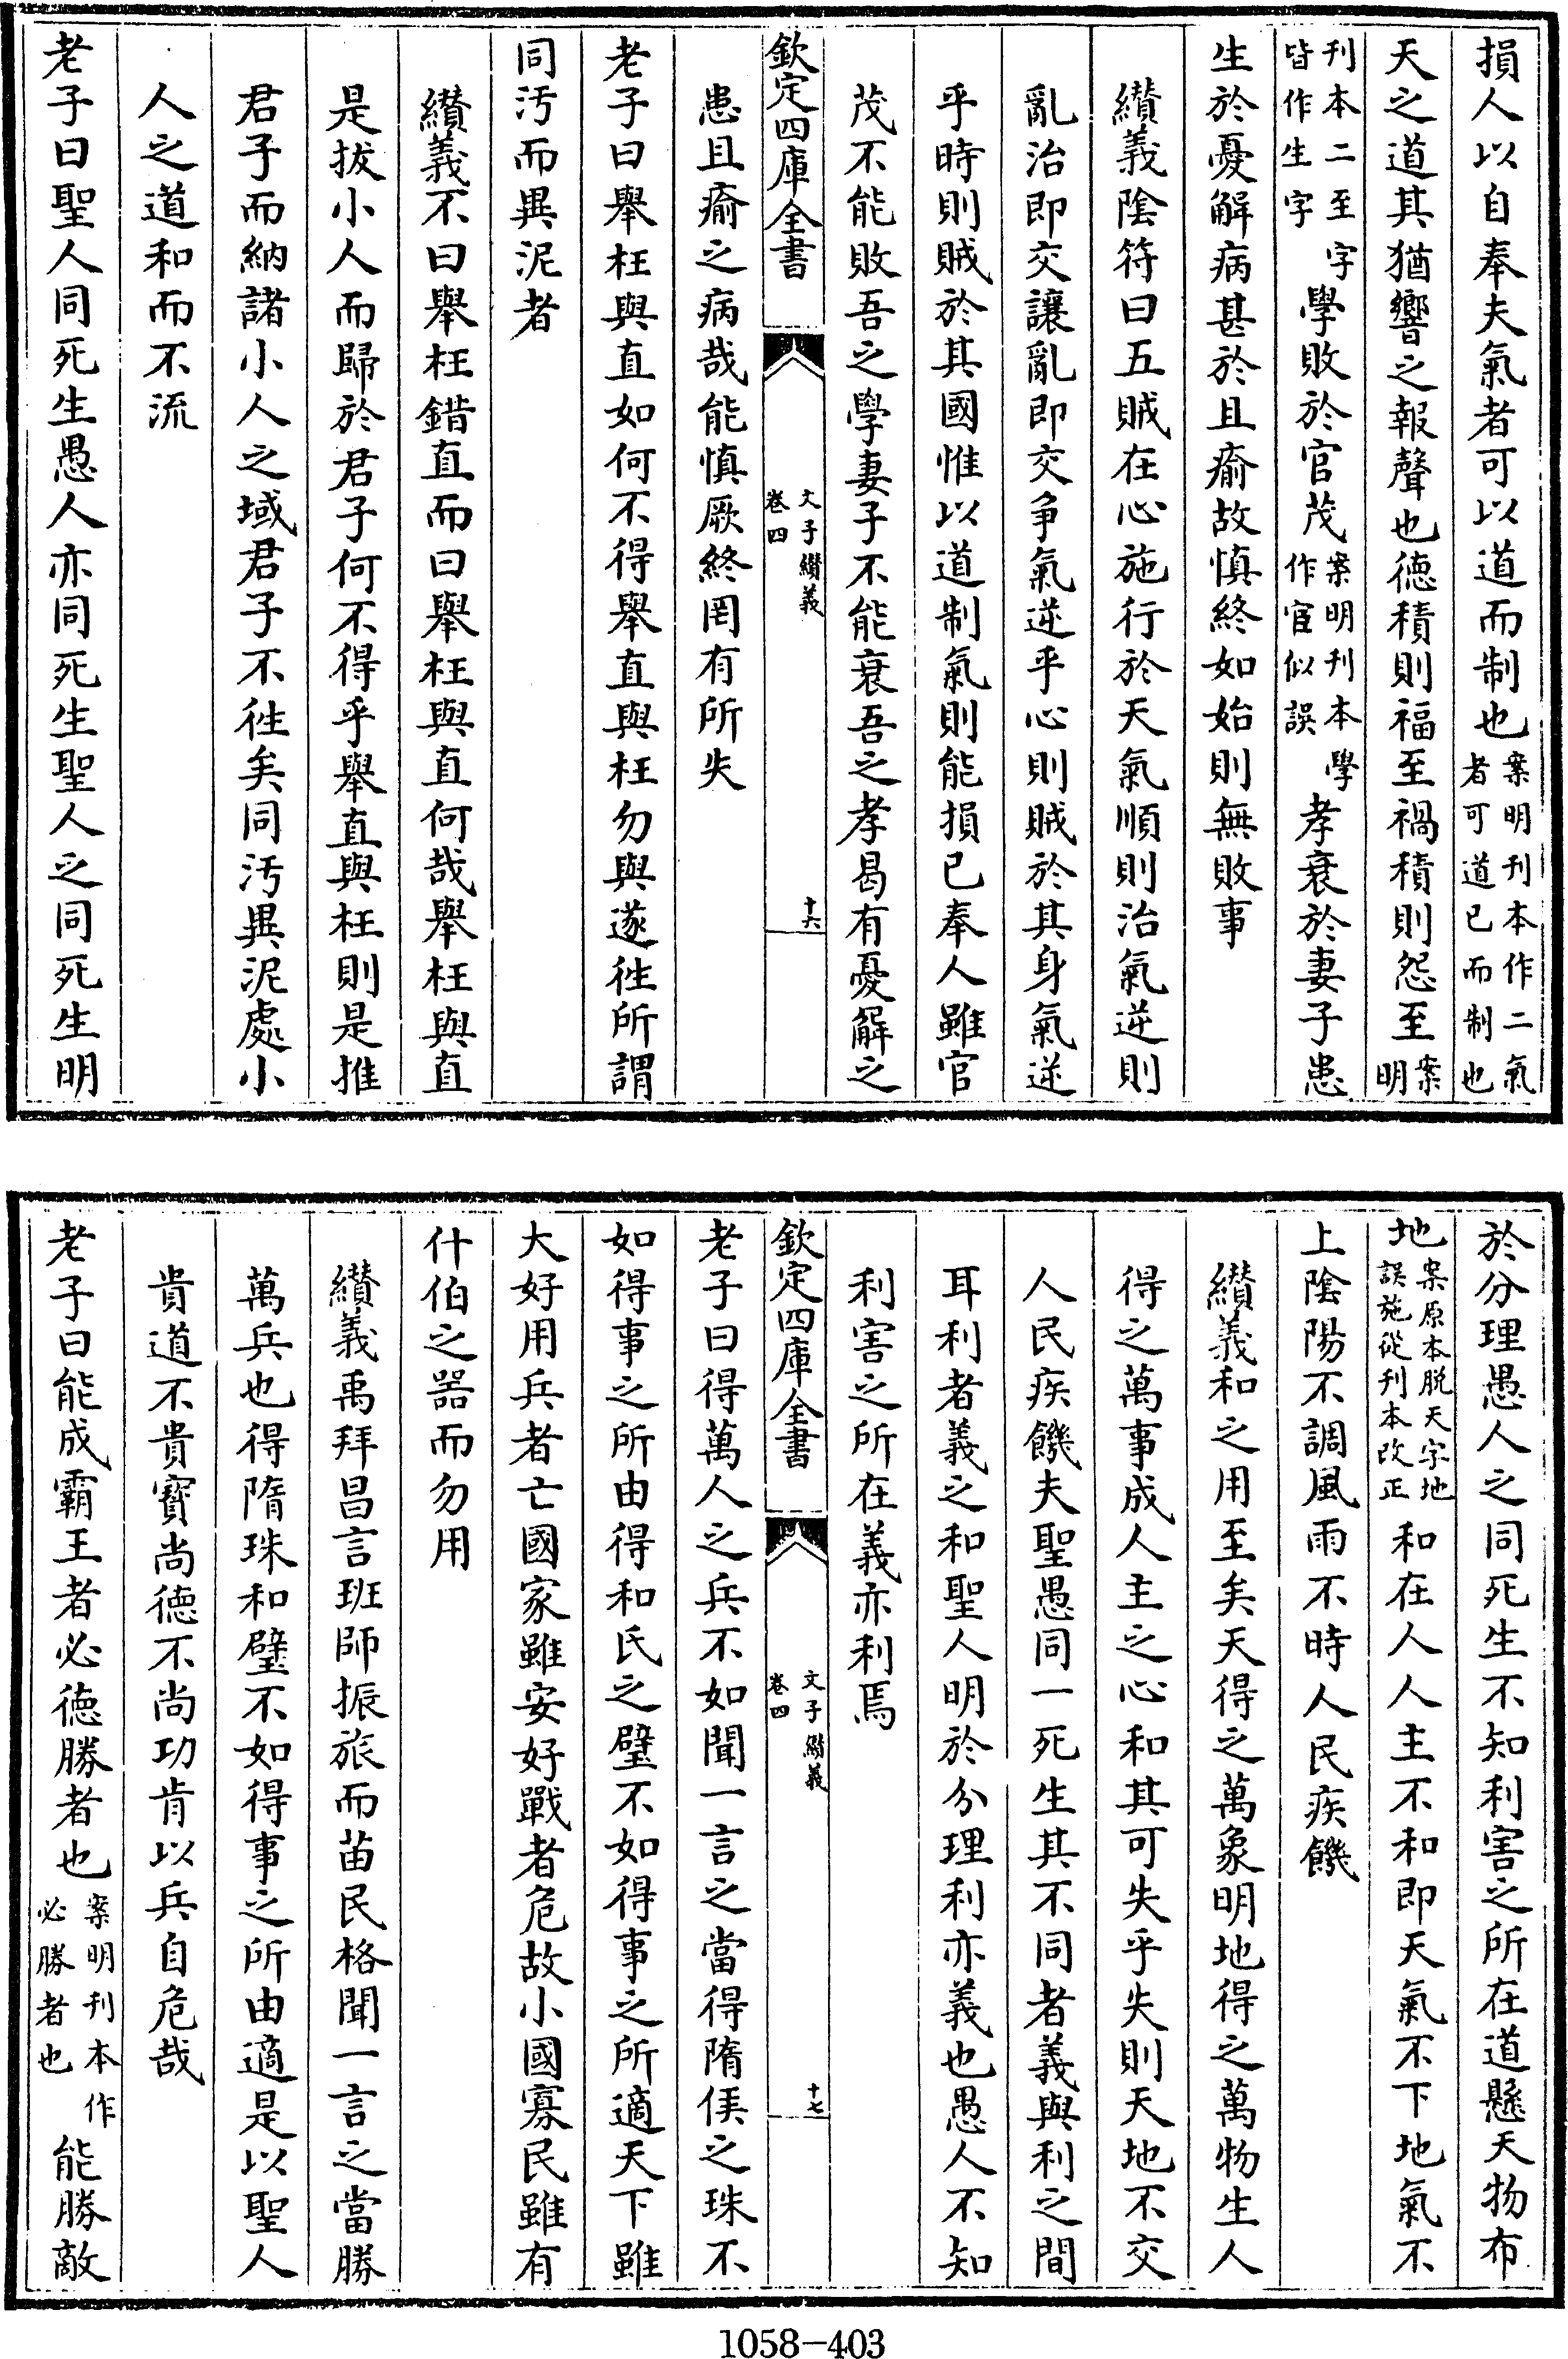 損人以自奉夫氣者可以道而制也案明刊本作二氣者可道已而制也
天之道其猶響之報聲也德積則福至禍積則怨至案明
刊本二至字皆作生字學敗於官茂案明刊本學作宦似誤孝衰於妻子患
生於憂解病甚於且瘉故慎終如始則無敗事
纉義陰符曰五賊在心施行於天氣順則治氣逆則
亂治即交讓亂即交爭氣逆乎心則賊於其身氣逆
乎時則賊於其國惟以道制氣則能損已奉人雖官
茂不能敗吾之學妻子不能衰吾之孝曷有憂解之
欽定四庫全書 文子纉義 卷四 十六
患且瘉之病哉能慎厥終罔有所失
老子曰舉枉與直如何不得舉直與枉勿與遂徃所謂
同汚而異泥者
纉義不曰舉枉錯直而曰舉枉與直何哉舉枉與直
是拔小人而歸於君子何不得乎舉直與枉則是推
君子而納諸小人之域君子不徃矣同汚異泥處小
人之道和而不流
老子曰聖人同死生愚人亦同死生聖人之同死生明
於分理愚人之同死生不知利害之所在道懸天物布
地案原本脱天字地誤施從刊本改正和在人人主不和即天氣不下地氣不
上陰陽不調風雨不時人民疾饑
纉義和之用至矣天得之萬象明地得之萬物生人
得之萬事成人主之心和其可失乎失則天地不交
人民疾饑夫聖愚同一死生其不同者義與利之間
耳利者義之和聖人明於分理利亦義也愚人不知
利害之所在義亦利焉
欽定四庫全書 文子纉義 卷四 十七
老子曰得萬人之兵不如聞一言之當得隋侯之珠不
如得事之所由得和氏之璧不如得事之所適天下雖
大好用兵者亡國家雖安好戰者危故小國寡民雖有
什伯之器而勿用
纉義禹拜昌言班師振旅而苗民格聞一言之當勝
萬兵也得隋珠和璧不如得事之所由適是以聖人
貴道不貴寳尚德不尚功肯以兵自危哉
老子曰能成霸王者必德勝者也案明刊本作必勝者也能勝敵
1058-403